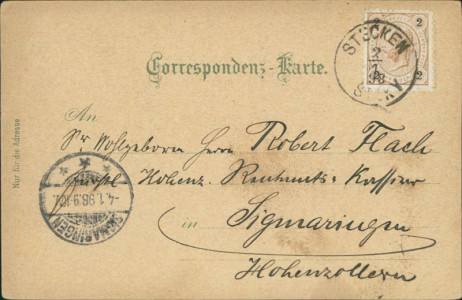 STECKEN
2
1
98
2
2
Correspondenz-Karte.
An
Sr Wohlgeboren Herrn Robert Flach
Fürstl Hohenz. Rentamts-Kassier
in
Sigmaringen
Hohenzollern
SIGMARINGEN
4.1.98.9-10V.
Nur für die Adresse